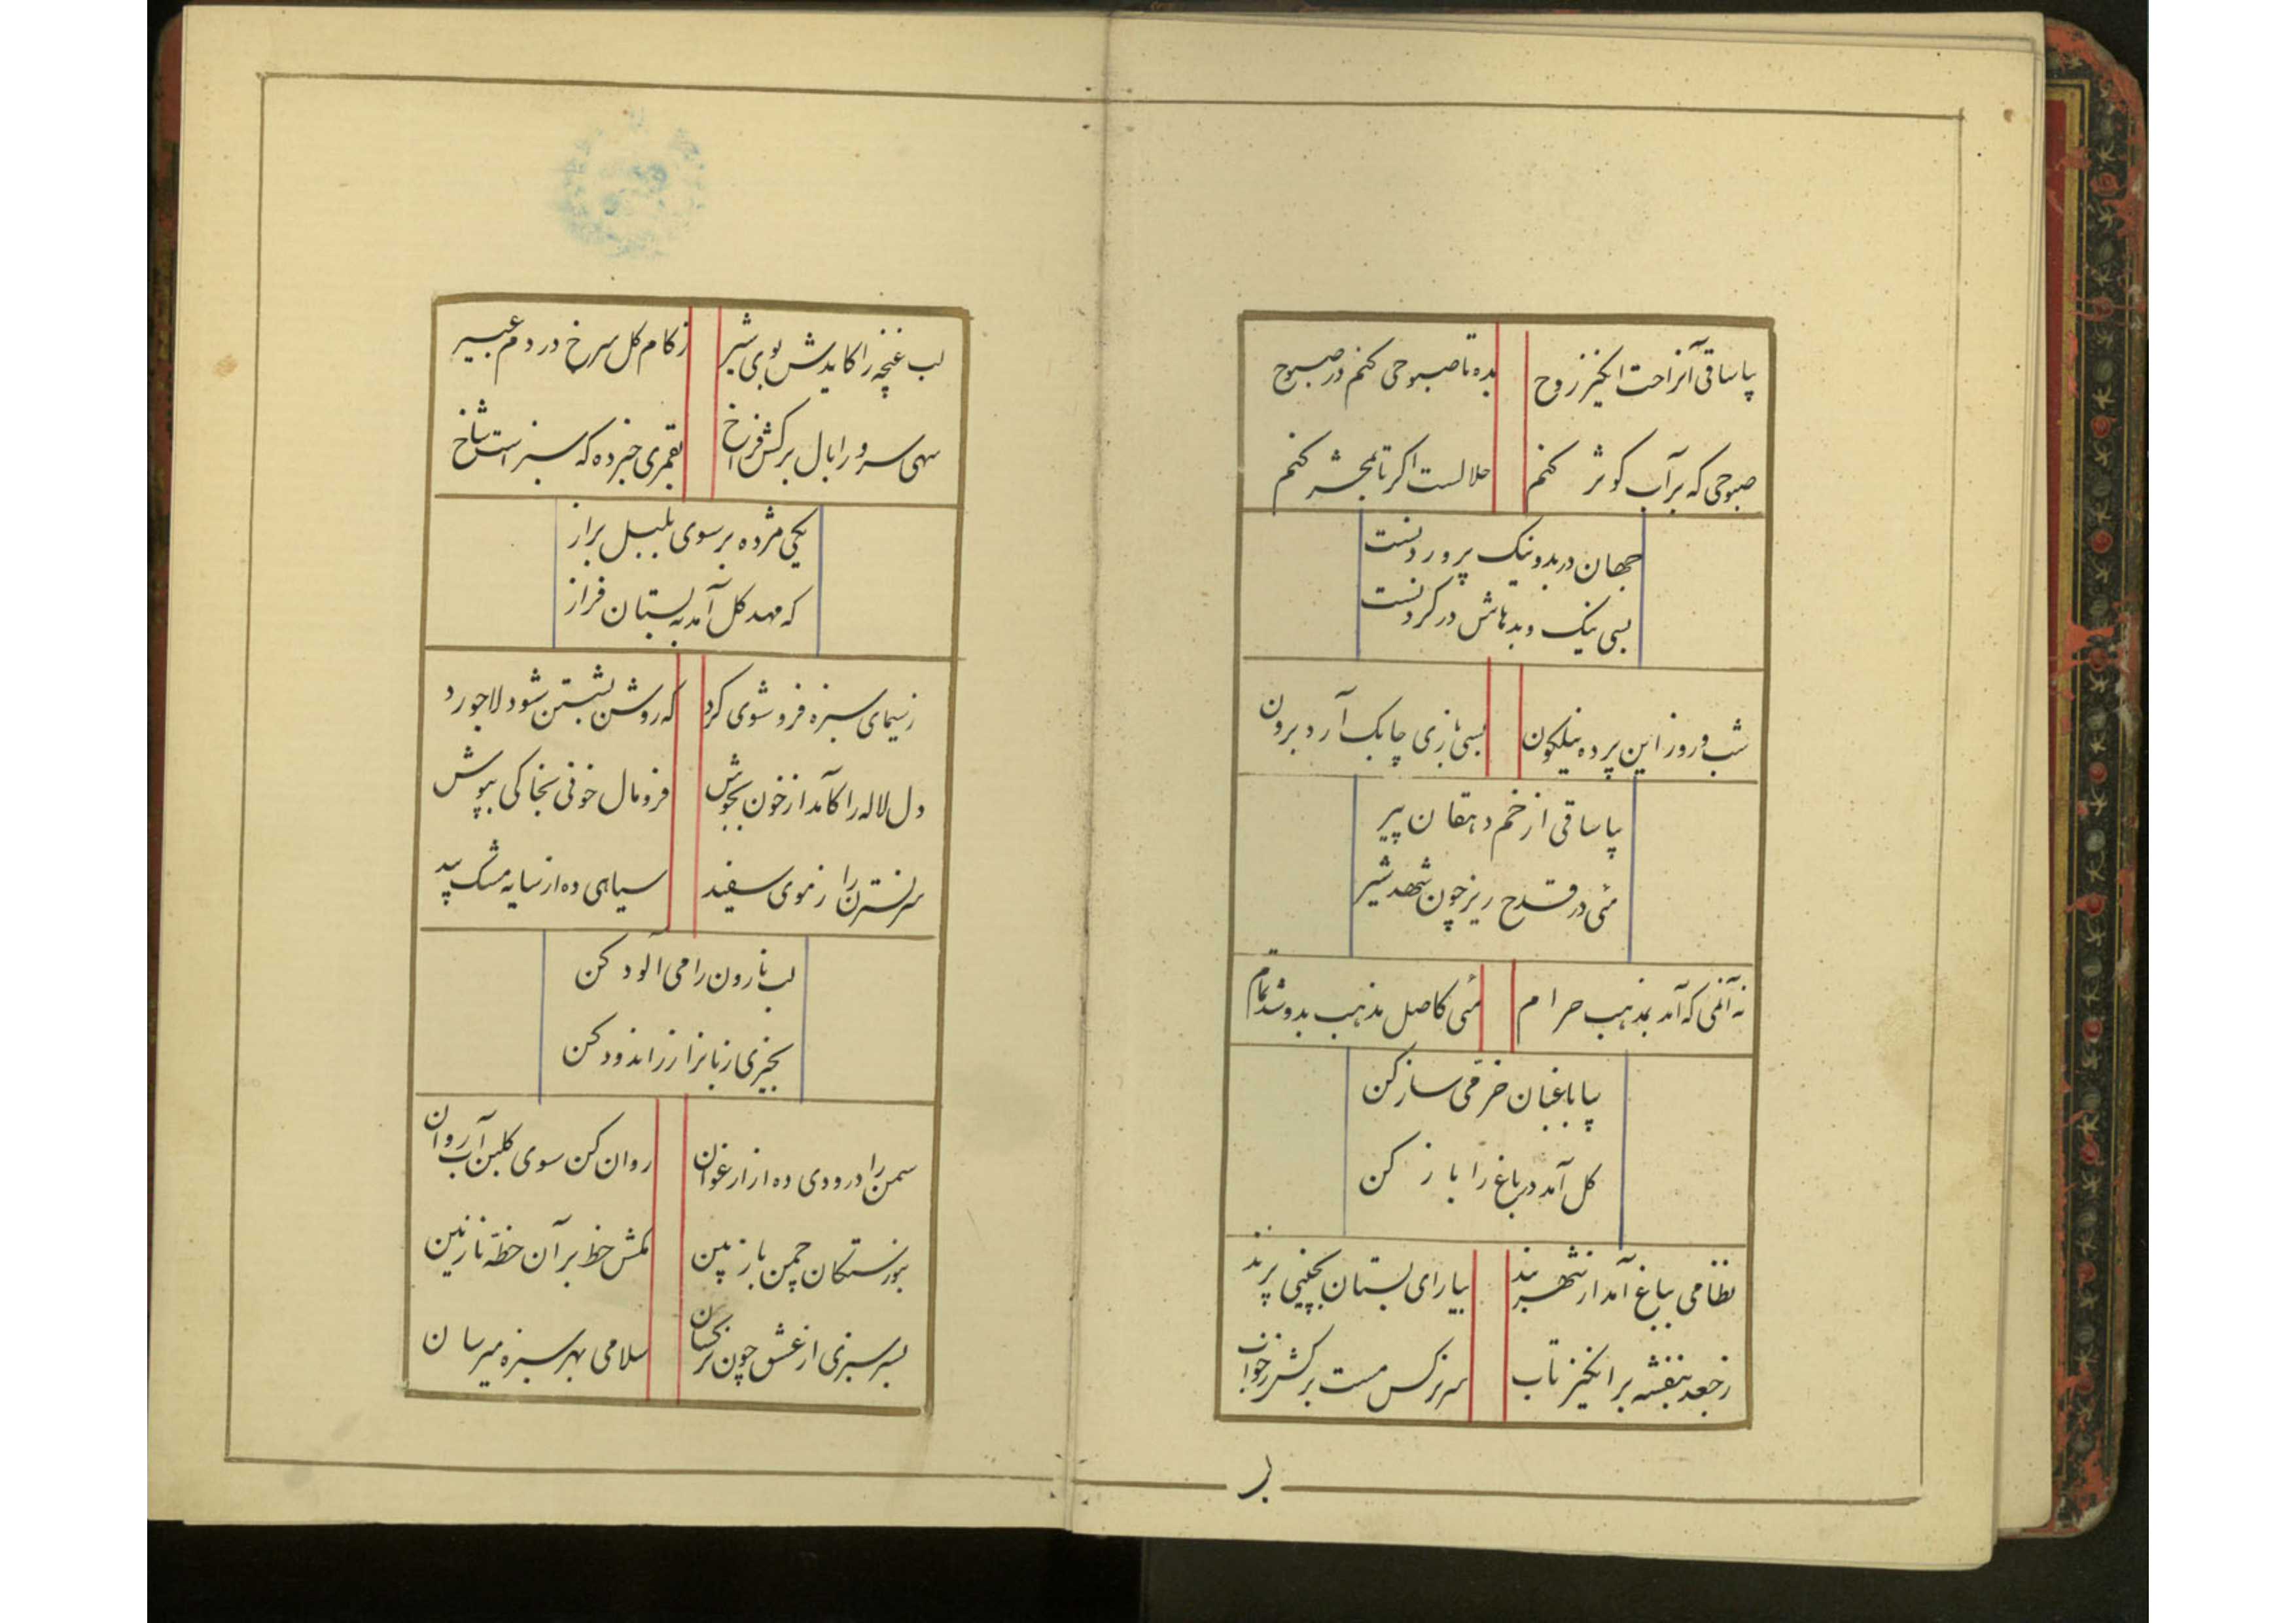 بیا ساقی آن راحت انگیز روح بده تا صبوحی کنم در صبوح
صبوحی که بر آب کوثر کنم حلالست اگر تا بمحشر کنم
جهان در بد و نیک پروردنست
بسی نیک و بدهاش در گردنست
شب و روز این پرده نیلگون بسی بازی چابک آرد برون
بیا ساقی از خم دهقان پیر
می در قدح ریز چون شهد و شیر
نه آن می که آمد بمذهب حرام می کاصل مذهب بدو شد تمام
بیا باغبان خرمی ساز کن
گل آمد در باغ را باز کن
نظامی بباغ آمد از شهربند بیارای بستان بچینی پرند
ز جعد بنفشه برانگیز تاب سر نرگس مست برکش ز خواب
لب
لب غنچه را کایدش بوی شیر ز کام گل سرخ در دم عبیر
سهی سرو را بال برکش فراخ بقمری خبر ده که سبز است شاخ
یکی مژده بر سوی بلبل براز
که مهد گل آمد به بستان فراز
ز سیمای سبزه فرو شوی گرد که روشن بشستن شود لاجورد
دل لاله را کآمد از خون بجوش فرو مال خونی بخاکی بپوش
سر نسترن را ز موی سفید سیاهی ده از سایه مشک بید
لب نارون را می آلود کن
بخیزی زبانرا زر اندود کن
سمن را درودی ده از ارغوان روان کن سوی گلبن آب روان
بنورستگان چمن باز بین مکش خط بر آن خطه نازنین
بسرسبزی از عشق چون من کسان سلامی بهر سبزه میرسان